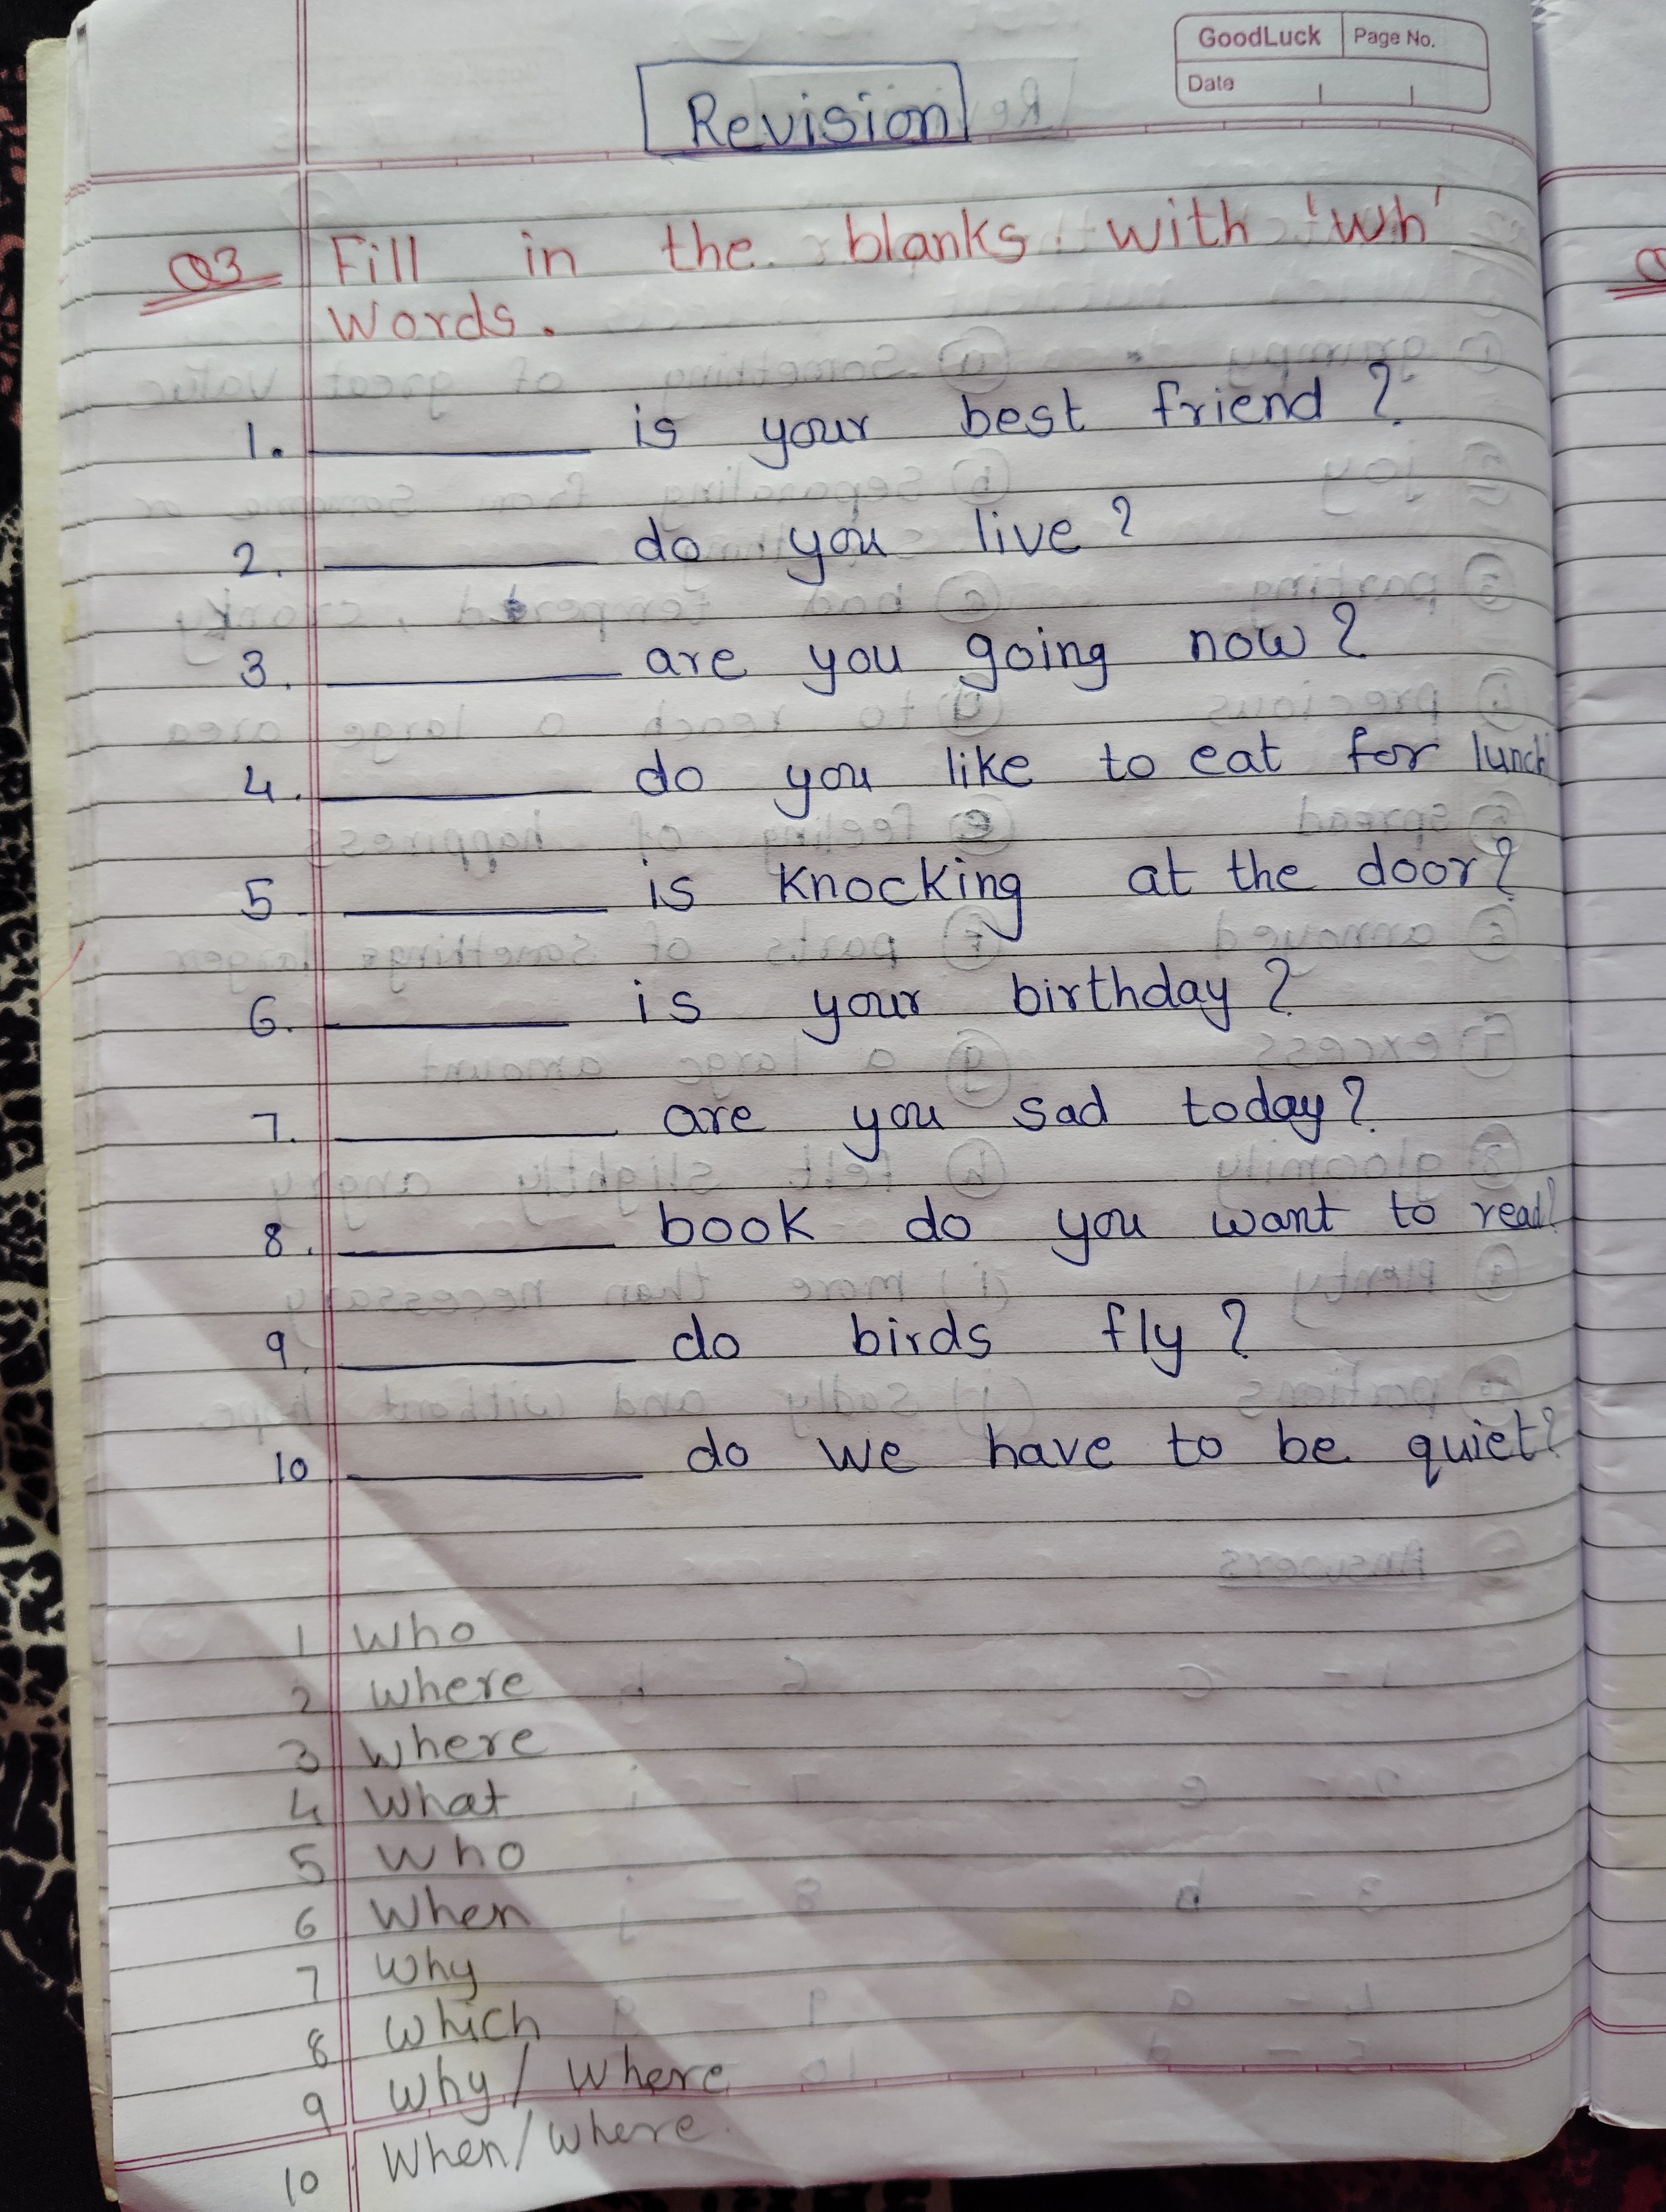 GoodLuck Page No.
Date
Revision
Q3 Fill in the blanks with 'Wh'
Words.
1. ________ is your best friend ?
2. ________ do you live ?
3. ________ are you going now ?
4. ________ do you like to eat for lunch
5 ________ is knocking at the door?
6. ________ is your birthday ?
7. ________ are you sad today ?
8. ________ book do you want to read?
9. ________ do birds fly ?
10 ________ do we have to be quiet?
1 Who
2 Where
3 Where
4 What
5 Who
6 When
7 Why
8 Which
9 Why / Where
10 When / Where